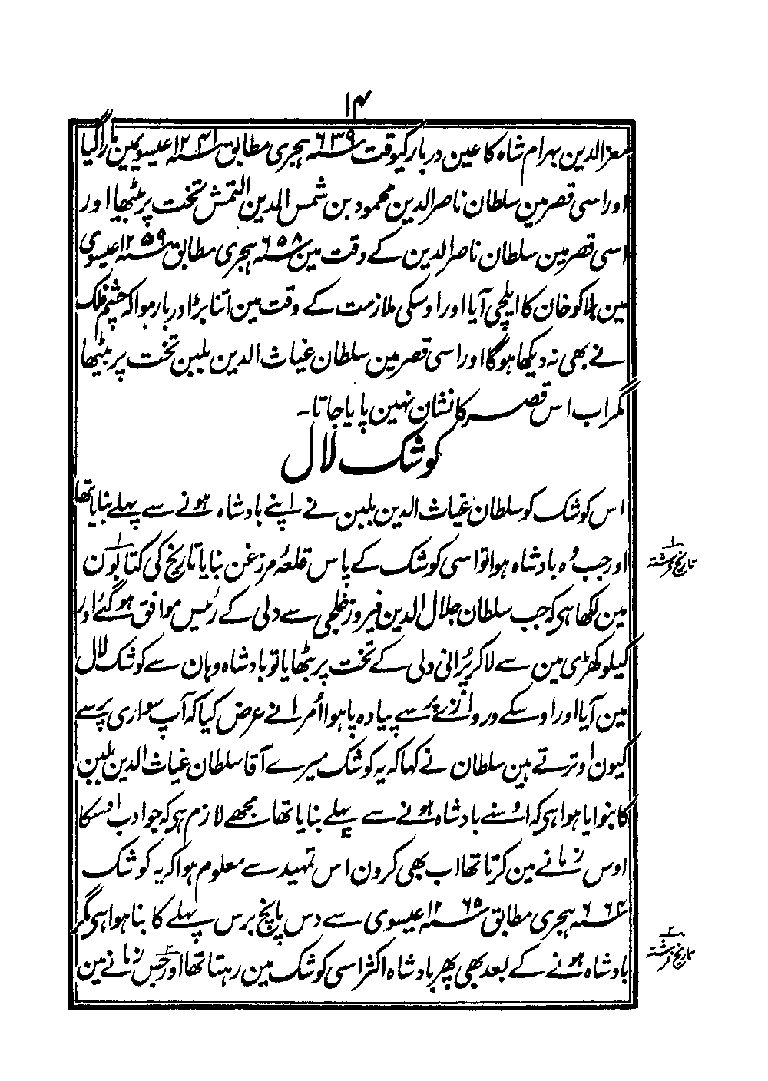 ۱۴
معزالدین بہرام شاہ کا عین دربار کیوقت ۶۳۹ سنہ ہجری مطابق ۱۲۴۱ سنہ عیسوی مین مارا گیا
اور اسی قصر مین سلطان ناصر الدین محمود بن شمس الدین التمش تخت پر بیٹھا اور
اسی قصر مین سلطان ناصر الدین کے وقت مین ۶۵۸ سنہ ہجری مطابق ۱۲۵۹ سنہ عیسوی
مین ہلاکو خان کا ایلچی آیا اور اوسکی ملازمت کے وقت مین اتنا بڑا دربار ہوا کہ چشم فلک
نے بھی نہ دیکھا ہوگا اور اسی قصر مین سلطان غیاث الدین بلبن تخت پر بیٹھا
مگر اب اس قصر کا نشان نہین پایا جاتا۔
کوشک لال
اس کوشک کو سلطان غیاث الدین بلبن نے اپنے بادشاہ ہونے سے پہلے بنایا تھا
اور جب وہ بادشاہ ہوا تو اسی کوشک کے پاس قلعہ مرزغن بنایا تاریخ کی کتابون
مین لکھا ہی کہ جب سلطان جلال الدین فیروز خلجی سے دلی کے رئیس موافق ہوگئے اور
کیلوکھڑی مین سے لاکر پرانی دلی کے تخت پر بٹھایا تو بادشاہ وہان سے کوشک لال
مین آیا اور اوسکے دروازے پر سے پیادہ پا ہوا اُمرا نے عرض کیا کہ آپ سواری پر سے
کیون اوترتے ہین سلطان نے کہا کہ یہ کوشک میرے آقا سلطان غیاث الدین بلبن
کا بنوایا ہوا ہی کہ اُسنے بادشاہ ہونے سے پہلے بنایا تھا مجھے لازم ہی کہ جو ادب اسکا
اوس زمانے مین کرتا تھا اب بھی کرون اس تمہید سے معلوم ہوا کہ یہ کوشک
۶۶۴ سنہ ہجری مطابق ۱۲۶۵ سنہ عیسوی سے دس پانچ برس پہلے کا بنا ہوا ہی مگر
بادشاہ ہونے کے بعد بھی پھر بادشاہ اکثر اسی کوشک مین رہتا تھا اور جس زمانے مین
۱ تاریخ فرشتہ
۲ تاریخ فرشتہ